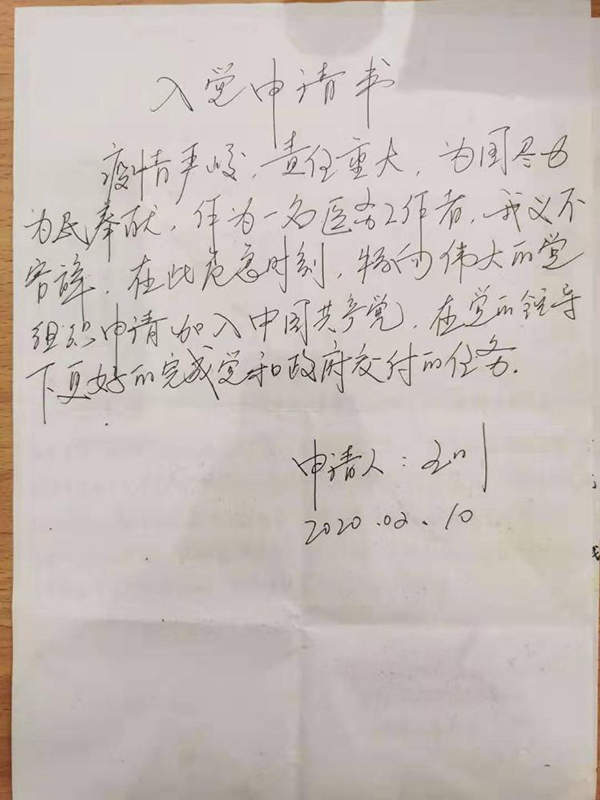 入党申请书
疫情严峻，责任重大，为国尽力
为民奉献，作为一名医务工作者，我义不
容辞，在此危急时刻，特向伟大的党
组织申请加入中国共产党，在党的领导
下更好的完成党和政府交付的任务.
申请人：
2020.02.10